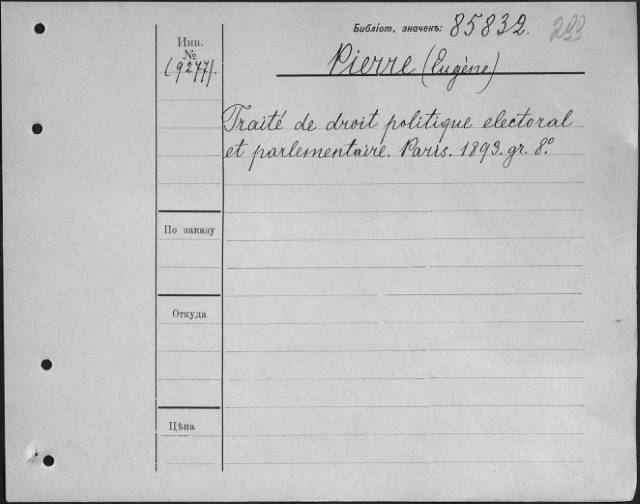 Библіот. значекъ: 85832. 200
Инв. № (9277).
Pierre (Eugène)
Traité de droit politique electoral
et parlementaire. Paris. 1893. gr. 8º.
По заказу
Откуда
Цѣна